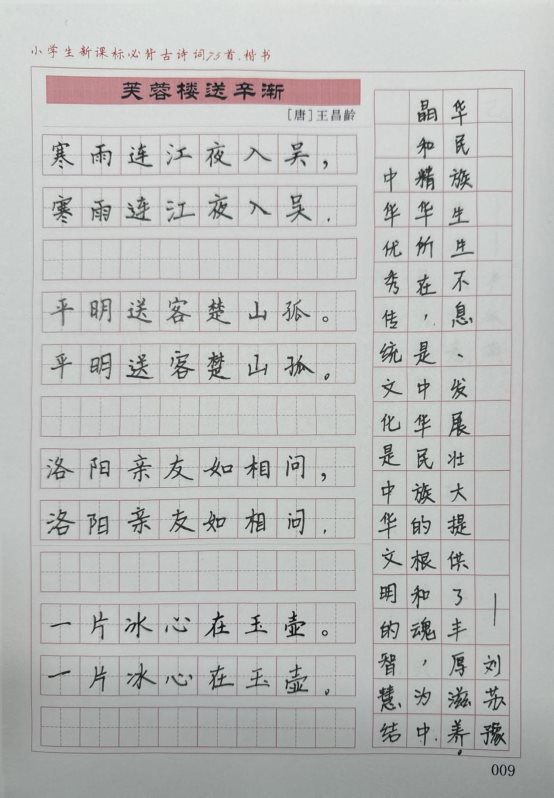 小学生新课标必背古诗词75首.楷书
芙蓉楼送辛渐
［唐］王昌龄
寒雨连江夜入吴，
寒雨连江夜入吴.
平明送客楚山孤。
平明送客楚山孤。
洛阳亲友如相问，
洛阳亲友如相问.
一片冰心在玉壶。
一片冰心在玉壶。
中华优秀传统文化是中华文明的智慧结
晶和精华所在，是中华民族的根和魂，为中
华民族生生不息、发展壮大提供了丰厚滋养。
—刘苏豫
009